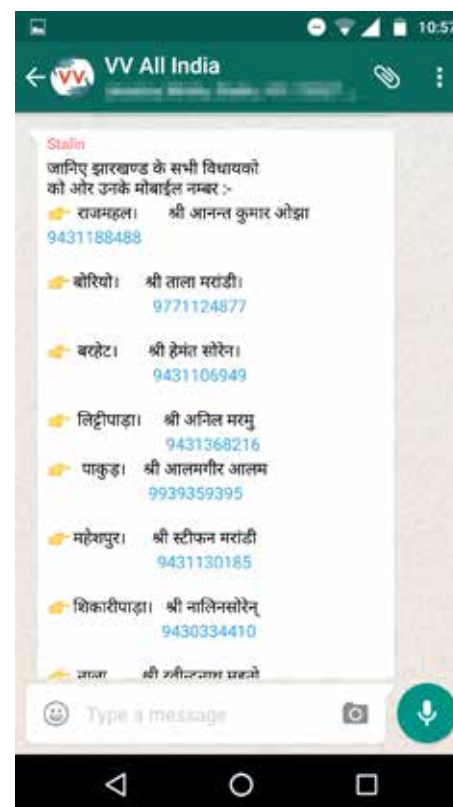 10:57
VV All India
Stalin
जानिए झारखण्ड के सभी विधायको
को ओर उनके मोबाईल नम्बर :-
👉 राजमहल। श्री आनन्त कुमार ओझा
9431188488
👉 बोरियो। श्री ताला मरांडी।
9771124877
👉 बरहेट। श्री हेमंत सोरेन।
9431106949
👉 लिट्टीपाड़ा। श्री अनिल मरमु
9431368216
👉 पाकुड़। श्री आलमगीर आलम
9939359395
👉 महेशपुर। श्री स्टीफन मरांडी
9431130185
👉 शिकारीपाड़ा। श्री नालिनसोरेन्
9430334410
Type a message